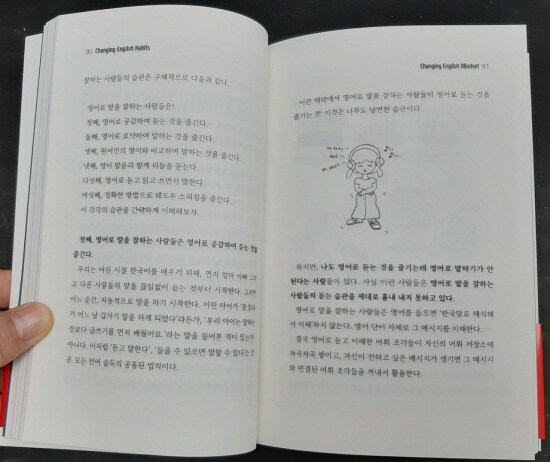 90 Changing English Habits
잘하는 사람들의 습관은 구체적으로 다음과 같다.
영어로 말을 잘하는 사람들은!
첫째, 영어로 공감하며 듣는 것을 즐긴다.
둘째, 영어로 요약하며 말하는 것을 즐긴다.
셋째, 원어민의 영어와 비교하며 말하는 것을 즐긴다.
넷째, 영어 발음과 함께 리듬을 듣는다.
다섯째, 영어로 듣고 읽고 쓰면서 말한다.
여섯째, 정확한 방법으로 섀도우 스피킹을 즐긴다.
이 각각의 습관을 간략하게 이해해보자.
첫째, 영어로 말을 잘하는 사람들은 영어로 공감하며 듣는 것을
즐긴다.
우리는 어린 시절 한국어를 배우기 위해, 먼저 엄마 아빠 그리
고 다른 사람들의 말을 끊임없이 듣는 것부터 시작한다. 그러면
어느 순간, 자동적으로 말을 하기 시작한다. 어떤 아이가
가 어느 날 갑자기 말을 하게 되었다'라든가, '우리 아이는 말하는
것보다 글쓰기를 먼저 배웠어요.'라는 말을 들어본 적이 있는가?
아니다. 이처럼 '듣고 말한다', '들을 수 있으면 말할 수 있다'는 것
은 모든 언어 습득의 공통된 법칙이다.
Changing English Mindset 91
이런 맥락에서 영어로 말을 잘하는 사람들이 영어로 듣는 것을
즐기는 것! 이것은 너무도 당연한 습관이다.
하지만, 나도 영어로 듣는 것을 즐기는데 영어로 말하기가 안
된다는 사람들이 있다. 사실 이런 사람들은 영어로 말을 잘하는
사람들의 듣는 습관을 제대로 흉내 내지 못하고 있다.
영어로 말을 잘하는 사람들은 영어를 들으면 '한국말로 해석해
서 이해'하지 않는다. 영어 단어 자체로 그 메시지를 이해한다.
결국 영어로 듣고 이해한 어휘 조각들이 자신의 어휘 저장소에
차곡차곡 쌓이고, 자신이 전하고 싶은 메시지가 생기면 그 메시지
와 연결된 어휘 조각들을 꺼내서 활용한다.